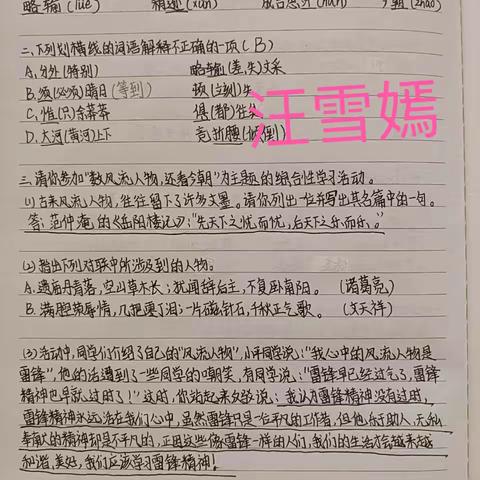 略输(lüè) 稍逊(xùn) 成吉思汗(hán) 今朝(zhāo)
二、下列划横线的词语解释不正确的一项(B)
A.分外(特别) 略输(差,失)文采
B.须(必须)晴日(等到) 顿(立刻)失
C.惟(只)余莽莽 俱(都)往矣
D.大河(黄河)上下 竞折腰(倾倒)
汪雪嫣
三、请你参加"数风流人物,还看今朝"为主题的综合性学习活动。
(1)古来风流人物,往往留下了许多文墨。请你列出一位并写出其名篇中的一句。
答:范仲淹的《岳阳楼记》:"先天下之忧而忧,后天下之乐而乐。"
(2)指出下列对联中所涉及到的人物。
A.遗庙丹青落,空山草木长;犹闻辞后主,不复卧南阳。(诸葛亮)
B.满腔荣辱情,几把零丁泪;一片磁针石,千秋正气歌。(文天祥)
(3)活动中,同学们介绍了自己的"风流人物",小千同学说:"我心中的风流人物是
雷锋",他的话遭到了一些同学的嘲笑,有同学说:"雷锋早已经过气了,雷锋
精神也早就过时了!"这时,你站起来反驳说:我认为雷锋精神没有过时,
雷锋精神永远活在我们心中,虽然雷锋只是一名平凡的工作者,但他乐于助人,无私
奉献的精神却是不平凡的,正因这些像雷锋一样的人们,我们的生活会越来越
和谐,美好,我们应该学习雷锋精神!